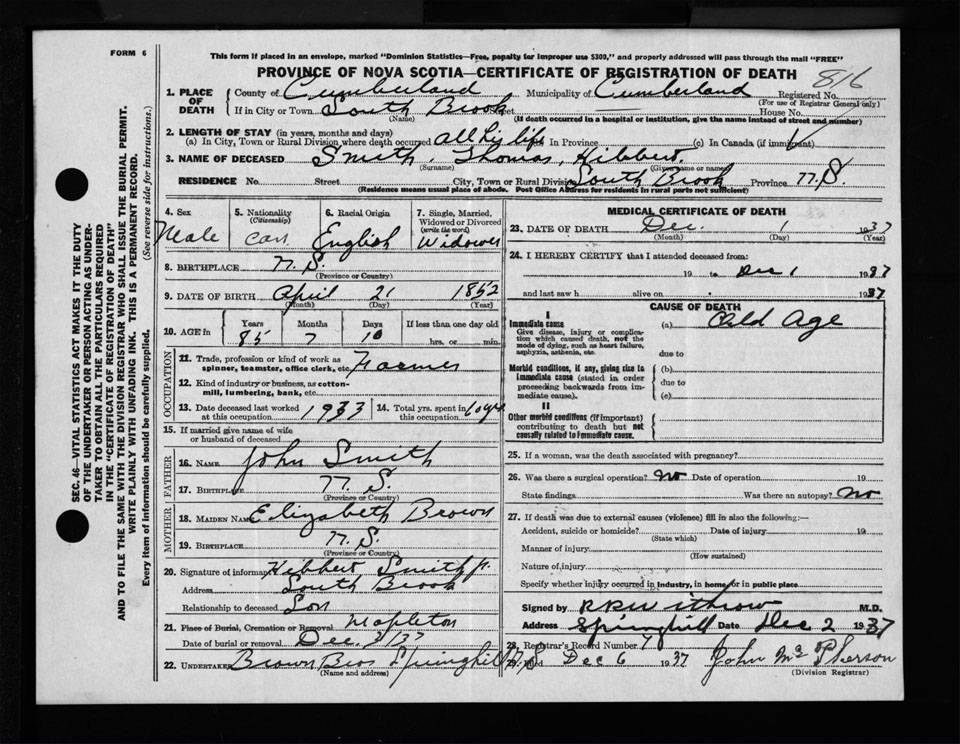 FORM 6
This form if placed in an envelope, marked "Dominion Statistics—Free, penalty for improper use $300," and properly addressed will pass through the mail "FREE"
PROVINCE OF NOVA SCOTIA—CERTIFICATE OF REGISTRATION OF DEATH
816
1. PLACE OF DEATH
County of Cumberland Municipality of Cumberland Registered No.
(For use of Registrar General only)
If in City or Town South Brook Street House No.
(Name) (If death occurred in a hospital or institution, give the name instead of street and number)
2. LENGTH OF STAY (in years, months and days)
(a) In City, Town or Rural Division where death occurred All his life In Province (c) In Canada (if immigrant)
3. NAME OF DECEASED Smith, Thomas, Hibbert.
(Surname) (Given name or names)
RESIDENCE No. Street City, Town or Rural Division South Brook Province N.S.
(Residence means usual place of abode. Post Office Address for residents in rural parts not sufficient)
4. Sex Male
5. Nationality (Citizenship) Can.
6. Racial Origin English
7. Single, Married, Widowed or Divorced (write the word) Widower
8. BIRTHPLACE N.S.
(Province or Country)
9. DATE OF BIRTH April 21 1852
(Month) (Day) (Year)
10. AGE in Years Months Days If less than one day old
85 7 10 hrs. or min.
OCCUPATION
11. Trade, profession or kind of work as spinner, teamster, office clerk, etc. Farmer
12. Kind of industry or business, as cotton-mill, lumbering, bank, etc.
13. Date deceased last worked at this occupation 1933
14. Total yrs. spent in this occupation
15. If married give name of wife or husband of deceased
FATHER
16. NAME John Smith
17. BIRTHPLACE N.S.
(Province or Country)
MOTHER
18. MAIDEN NAME Elizabeth Brown
19. BIRTHPLACE N.S.
(Province or Country)
20. Signature of informant Hibbert Smith Jr.
Address South Brook
Relationship to deceased Son
21. Place of Burial, Cremation or Removal Mapleton
Date of burial or removal Dec 3/37
22. UNDERTAKER Brown Bros Springhill N.S.
(Name and address)
MEDICAL CERTIFICATE OF DEATH
23. DATE OF DEATH Dec. 1 1937
(Month) (Day) (Year)
24. I HEREBY CERTIFY that I attended deceased from:
19 to Dec 1 1937
and last saw h alive on 1937
CAUSE OF DEATH
I
Immediate cause
Give disease, injury or complication which caused death, not the mode of dying, such as heart failure, asphyxia, asthenia, etc.
(a) Old Age
due to
Morbid conditions, if any, giving rise to immediate cause (stated in order proceeding backwards from immediate cause).
(b)
due to
(c)
II
Other morbid conditions (if important) contributing to death but not causally related to immediate cause.
25. If a woman, was the death associated with pregnancy?
26. Was there a surgical operation? No Date of operation 19
State findings Was there an autopsy? No
27. If death was due to external causes (violence) fill in also the following:—
Accident, suicide or homicide? Date of injury 19
(State which)
Manner of injury
(How sustained)
Nature of injury
Specify whether injury occurred in industry, in home, or in public place
Signed by R R Withrow M.D.
Address Springhill Date Dec 2 1937
28. Registrar's Record Number
29. Filed Dec 6 1937 John McPherson
(Division Registrar)
SEC. 46—VITAL STATISTICS ACT MAKES IT THE DUTY
OF THE UNDERTAKER OR PERSON ACTING AS UNDER-
TAKER TO OBTAIN ALL THE PARTICULARS REQUIRED
IN THE "CERTIFICATE OF REGISTRATION OF DEATH"
AND TO FILE THE SAME WITH THE DIVISION REGISTRAR WHO SHALL ISSUE THE BURIAL PERMIT.
WRITE PLAINLY WITH UNFADING INK. THIS IS A PERMANENT RECORD.
Every item of information should be carefully supplied. (See reverse side for instructions.)